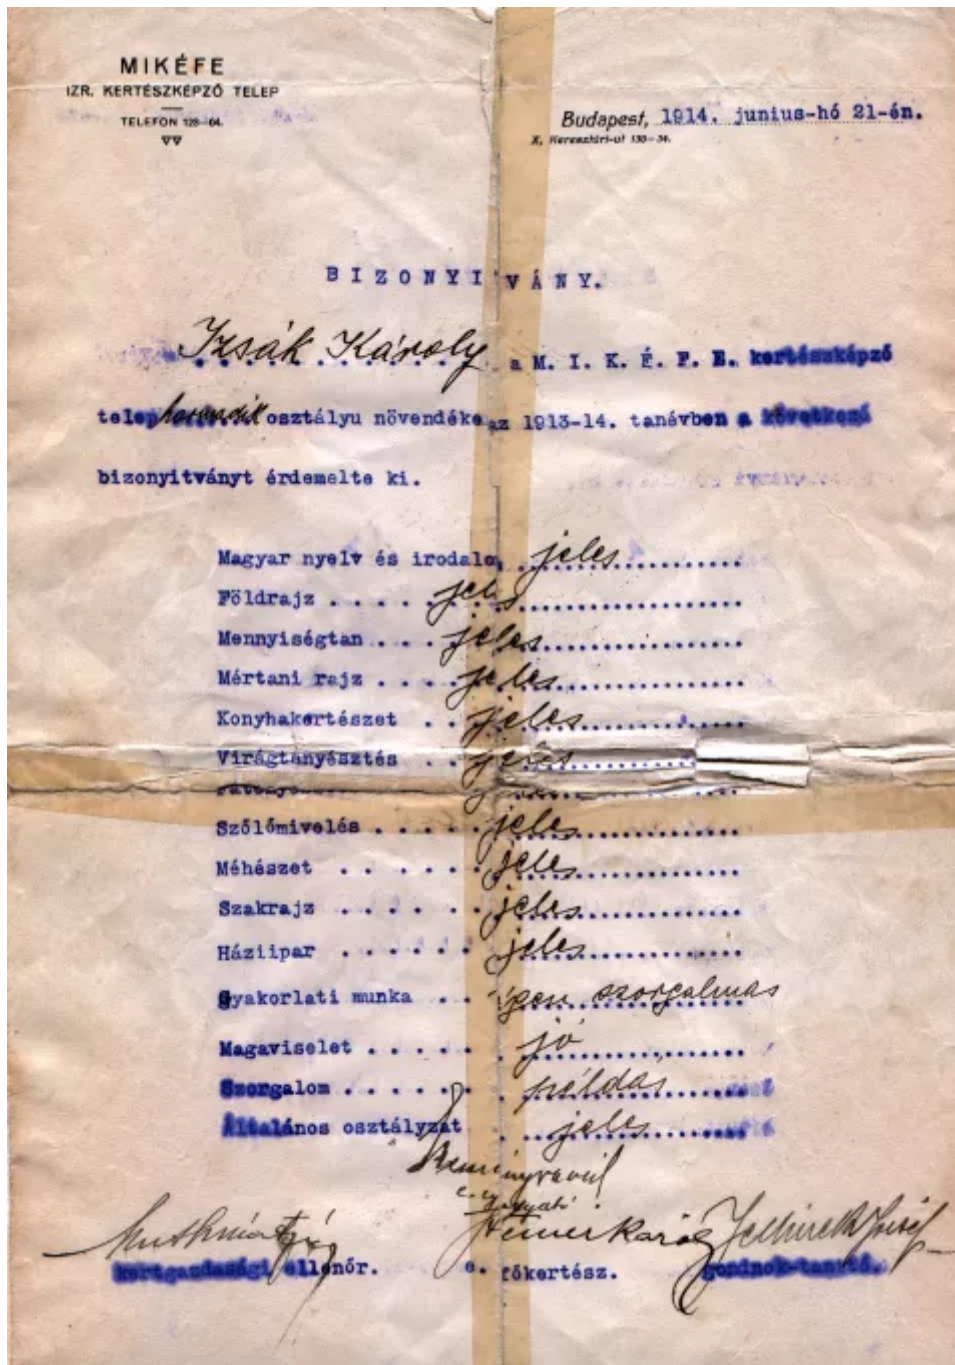 MIKÉFE
IZR. KERTÉSZKÉPZŐ TELEP
TELEFON 128—64.
Budapest, 1914. junius-hó 21-én.
X, Keresztúri-ut 130—34.
BIZONYITVÁNY.
Izsák Károly a M. I. K. É. F. E. kertészképző
telep harmadik osztályu növendéke az 1913-14. tanévben a következő
bizonyitványt érdemelte ki.
Magyar nyelv és irodalo jeles
Földrajz jeles
Mennyiségtan jeles
Mértani rajz jeles
Konyhakertészet jeles
Virágtenyésztés jeles
Szőlőmivelés jeles
Méhészet jeles
Szakrajz jeles
Háziipar jeles
Gyakorlati munka igen szorgalmas
Magaviselet jó
Szorgalom példás
Általános osztályzat jeles
e. igazgató
Jellinek József
kertgazdasági ellenőr. e. főkertész. gondnok-tanító.